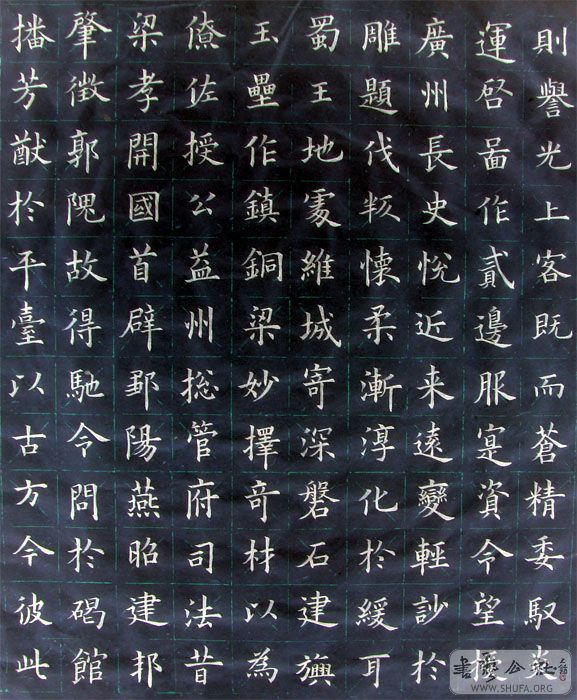 則譽光上客既而蒼精委馭炎
運啓啚作貳邊服寔資令望授
廣州長史悅近来遠變輕訬於
雕題伐叛懷柔漸淳化於緩耳
蜀王地處維城寄深磐石建旟
玉壘作鎮銅梁妙擇奇材以為
僚佐授公益州捴管府司法昔
梁孝開國首辟鄒陽燕昭建邦
肇徵郭隗故得馳令問於碣館
播芳猷於平臺以古方今彼此
書法公社
WWW.SHUFA.ORG